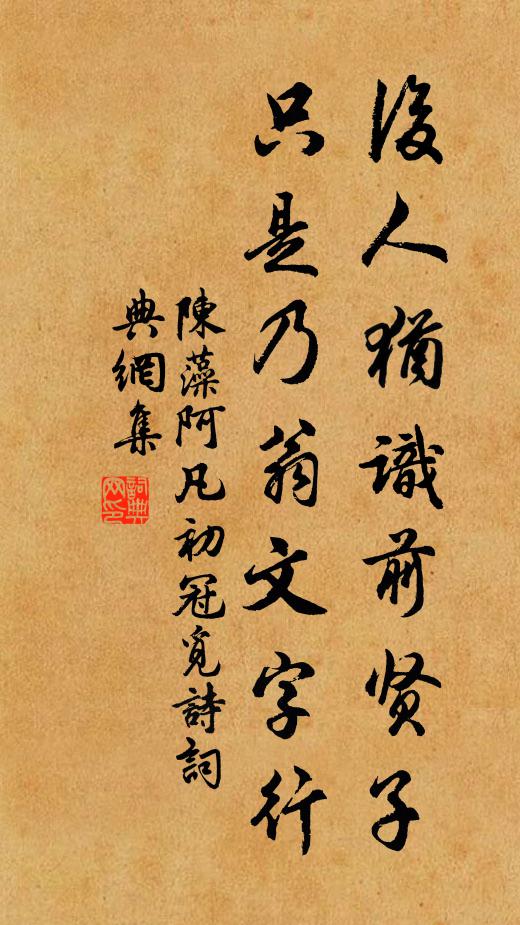 後人猶識前贤子
只是乃翁文字行
陳藻阿凡初冠覓詩詞
典網集
詞典网印